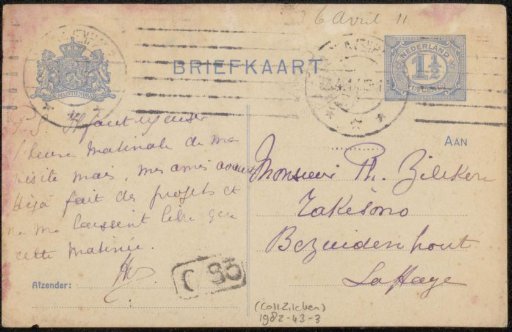 6 Avril 11
BRIEFKAART
NEDERLAND
1½
AAN
P.S. Il faut excuser
l'heure matinale de ma
visite mais, mes amis avaient
déjà fait des projets et
ne me laissent libre que
cette matinée.
Monsieur Th. Zilcken
Bezuidenhout
La Haye
Afzender:
(Coll Zilcken)
1982-43-3